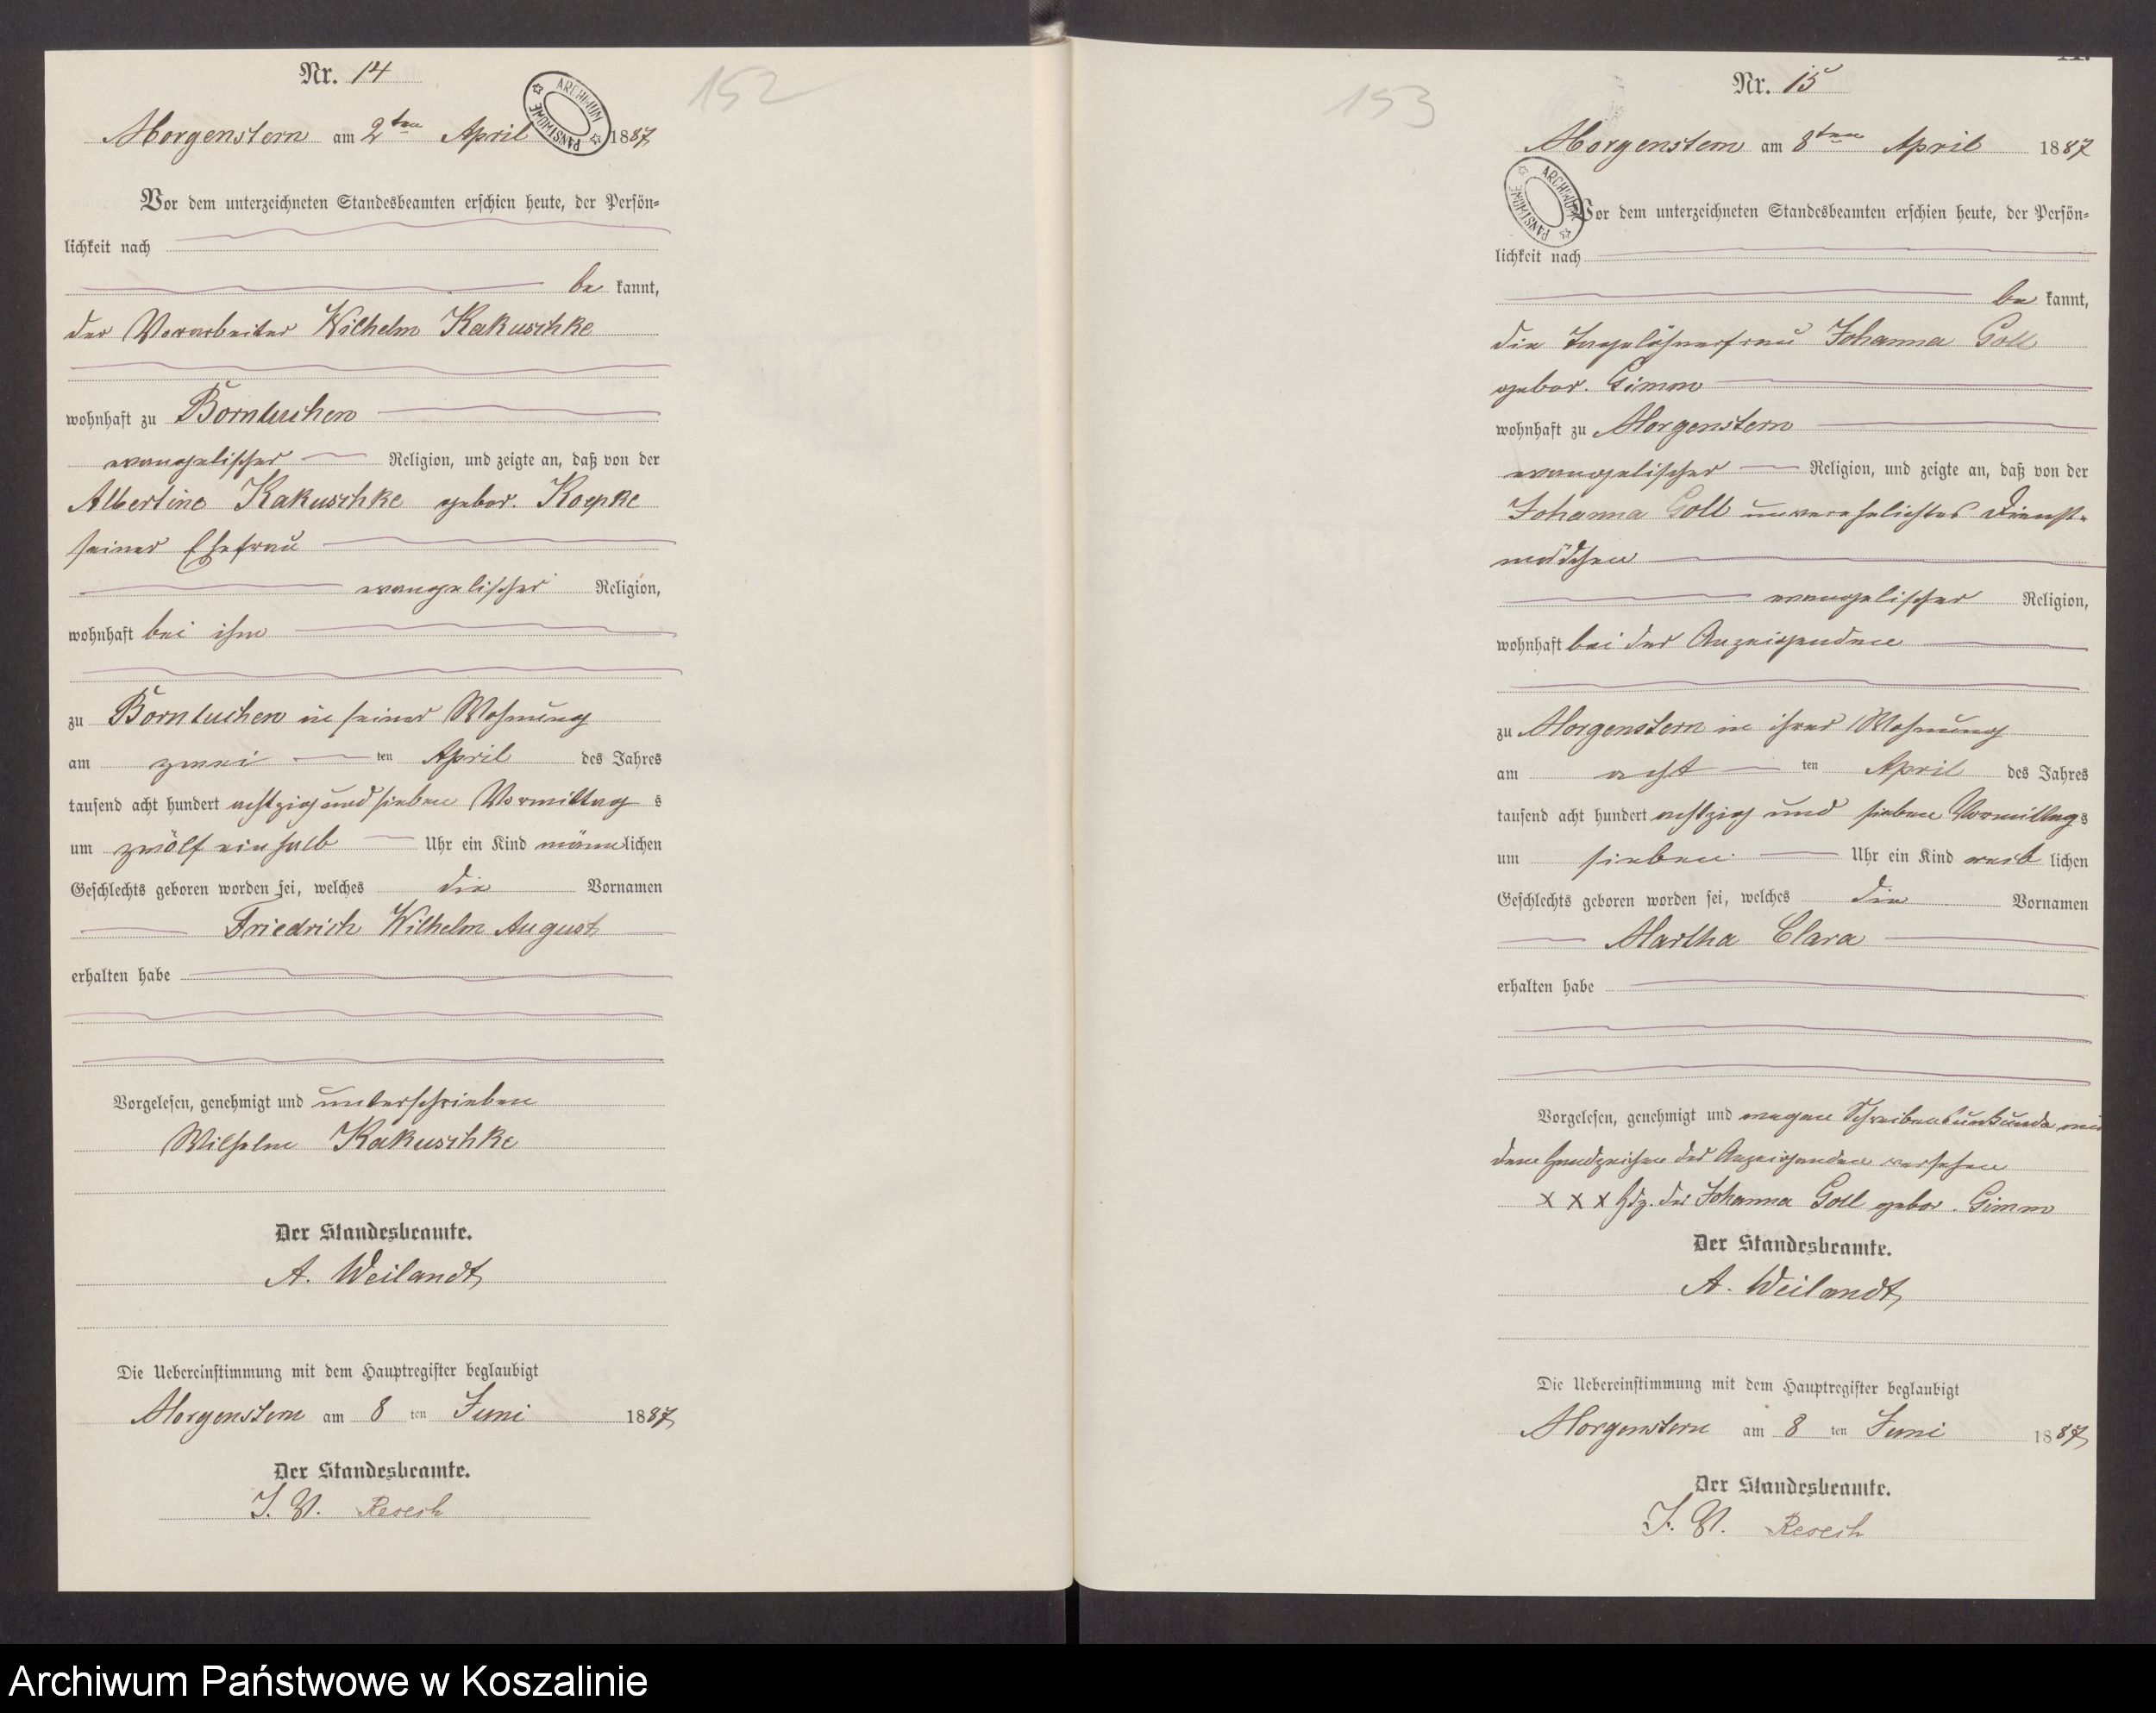 Nr. 14
152
Morgenstern am 2ten April 1887
ARCHIWUM PAŃSTWOWE
Vor dem unterzeichneten Standesbeamten erschien heute, der Persön-
lichkeit nach
be kannt,
der Vorarbeiter Wilhelm Kakuschke
wohnhaft zu Borntuchen
evangelischer Religion, und zeigte an, daß von der
Albertine Kakuschke gebor. Koepke
seiner Ehefrau
evangelischer Religion,
wohnhaft bei ihm
zu Borntuchen in seiner Wohnung
am zwei ten April des Jahres
tausend acht hundert achtzig und sieben Vormittag s
um zwölf einhalb Uhr ein Kind männlichen
Geschlechts geboren worden sei, welches die Vornamen
Friedrich Wilhelm August
erhalten habe
Vorgelesen, genehmigt und unterschrieben
Wilhelm Kakuschke
Der Standesbeamte.
A. Weilandt
Die Uebereinstimmung mit dem Hauptregister beglaubigt
Morgenstern am 8 ten Juni 1887
Der Standesbeamte.
J. V. Resech
153
Nr. 15
Morgenstern am 8ten April 1887
ARCHIWUM PAŃSTWOWE
Vor dem unterzeichneten Standesbeamten erschien heute, der Persön-
lichkeit nach
be kannt,
die Tagelöhnerfrau Johanna Goll
gebor. Gimm
wohnhaft zu Morgenstern
evangelischer Religion, und zeigte an, daß von der
Johanna Goll unverehelichtes Dienst-
mädchen
evangelischer Religion,
wohnhaft bei der Anzeigenden
zu Morgenstern in ihrer Wohnung
am acht ten April des Jahres
tausend acht hundert achtzig und sieben Vormittag s
um sieben Uhr ein Kind weib lichen
Geschlechts geboren worden sei, welches die Vornamen
Martha Clara
erhalten habe
Vorgelesen, genehmigt und wegen Schreibensunkunde mit
dem Handzeichen der Anzeigenden versehen
X X X Hdz. der Johanna Goll gebor. Gimm
Der Standesbeamte.
A. Weilandt
Die Uebereinstimmung mit dem Hauptregister beglaubigt
Morgenstern am 8 ten Juni 1887
Der Standesbeamte.
J. V. Resech
Archiwum Państwowe w Koszalinie